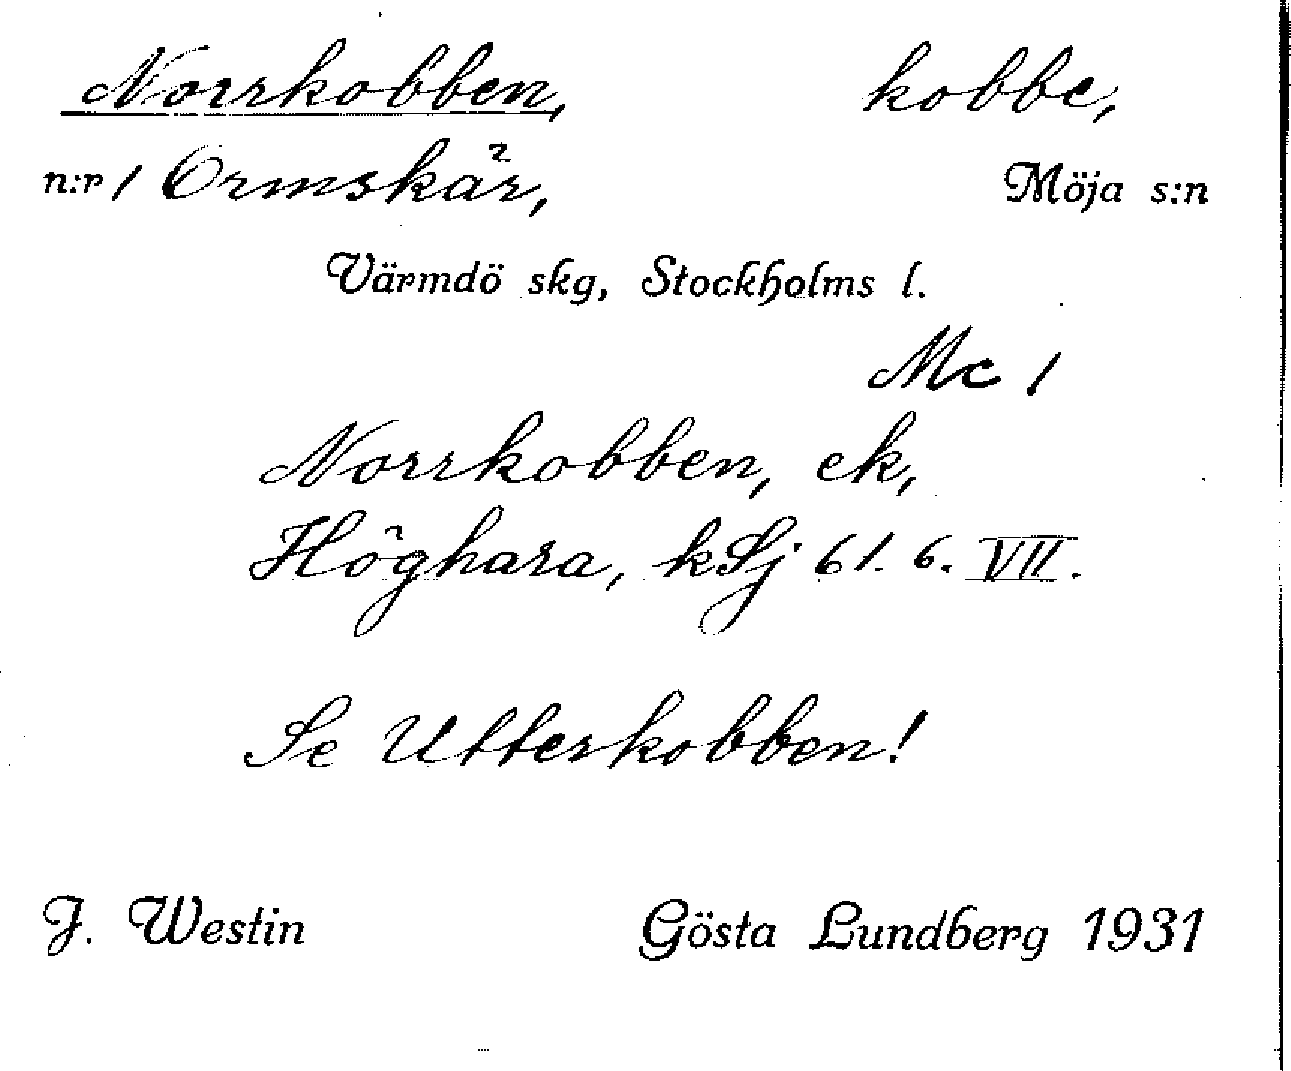 Norrkobben, kobbe,
n:r 1 Ormskär, Möja s:n
Värmdö skg, Stockholms l.
Mc 1
Norrkobben, ek,
Höghara, kSj 61. 6. VII.
Se Utterkobben!
J. Westin Gösta Lundberg 1931